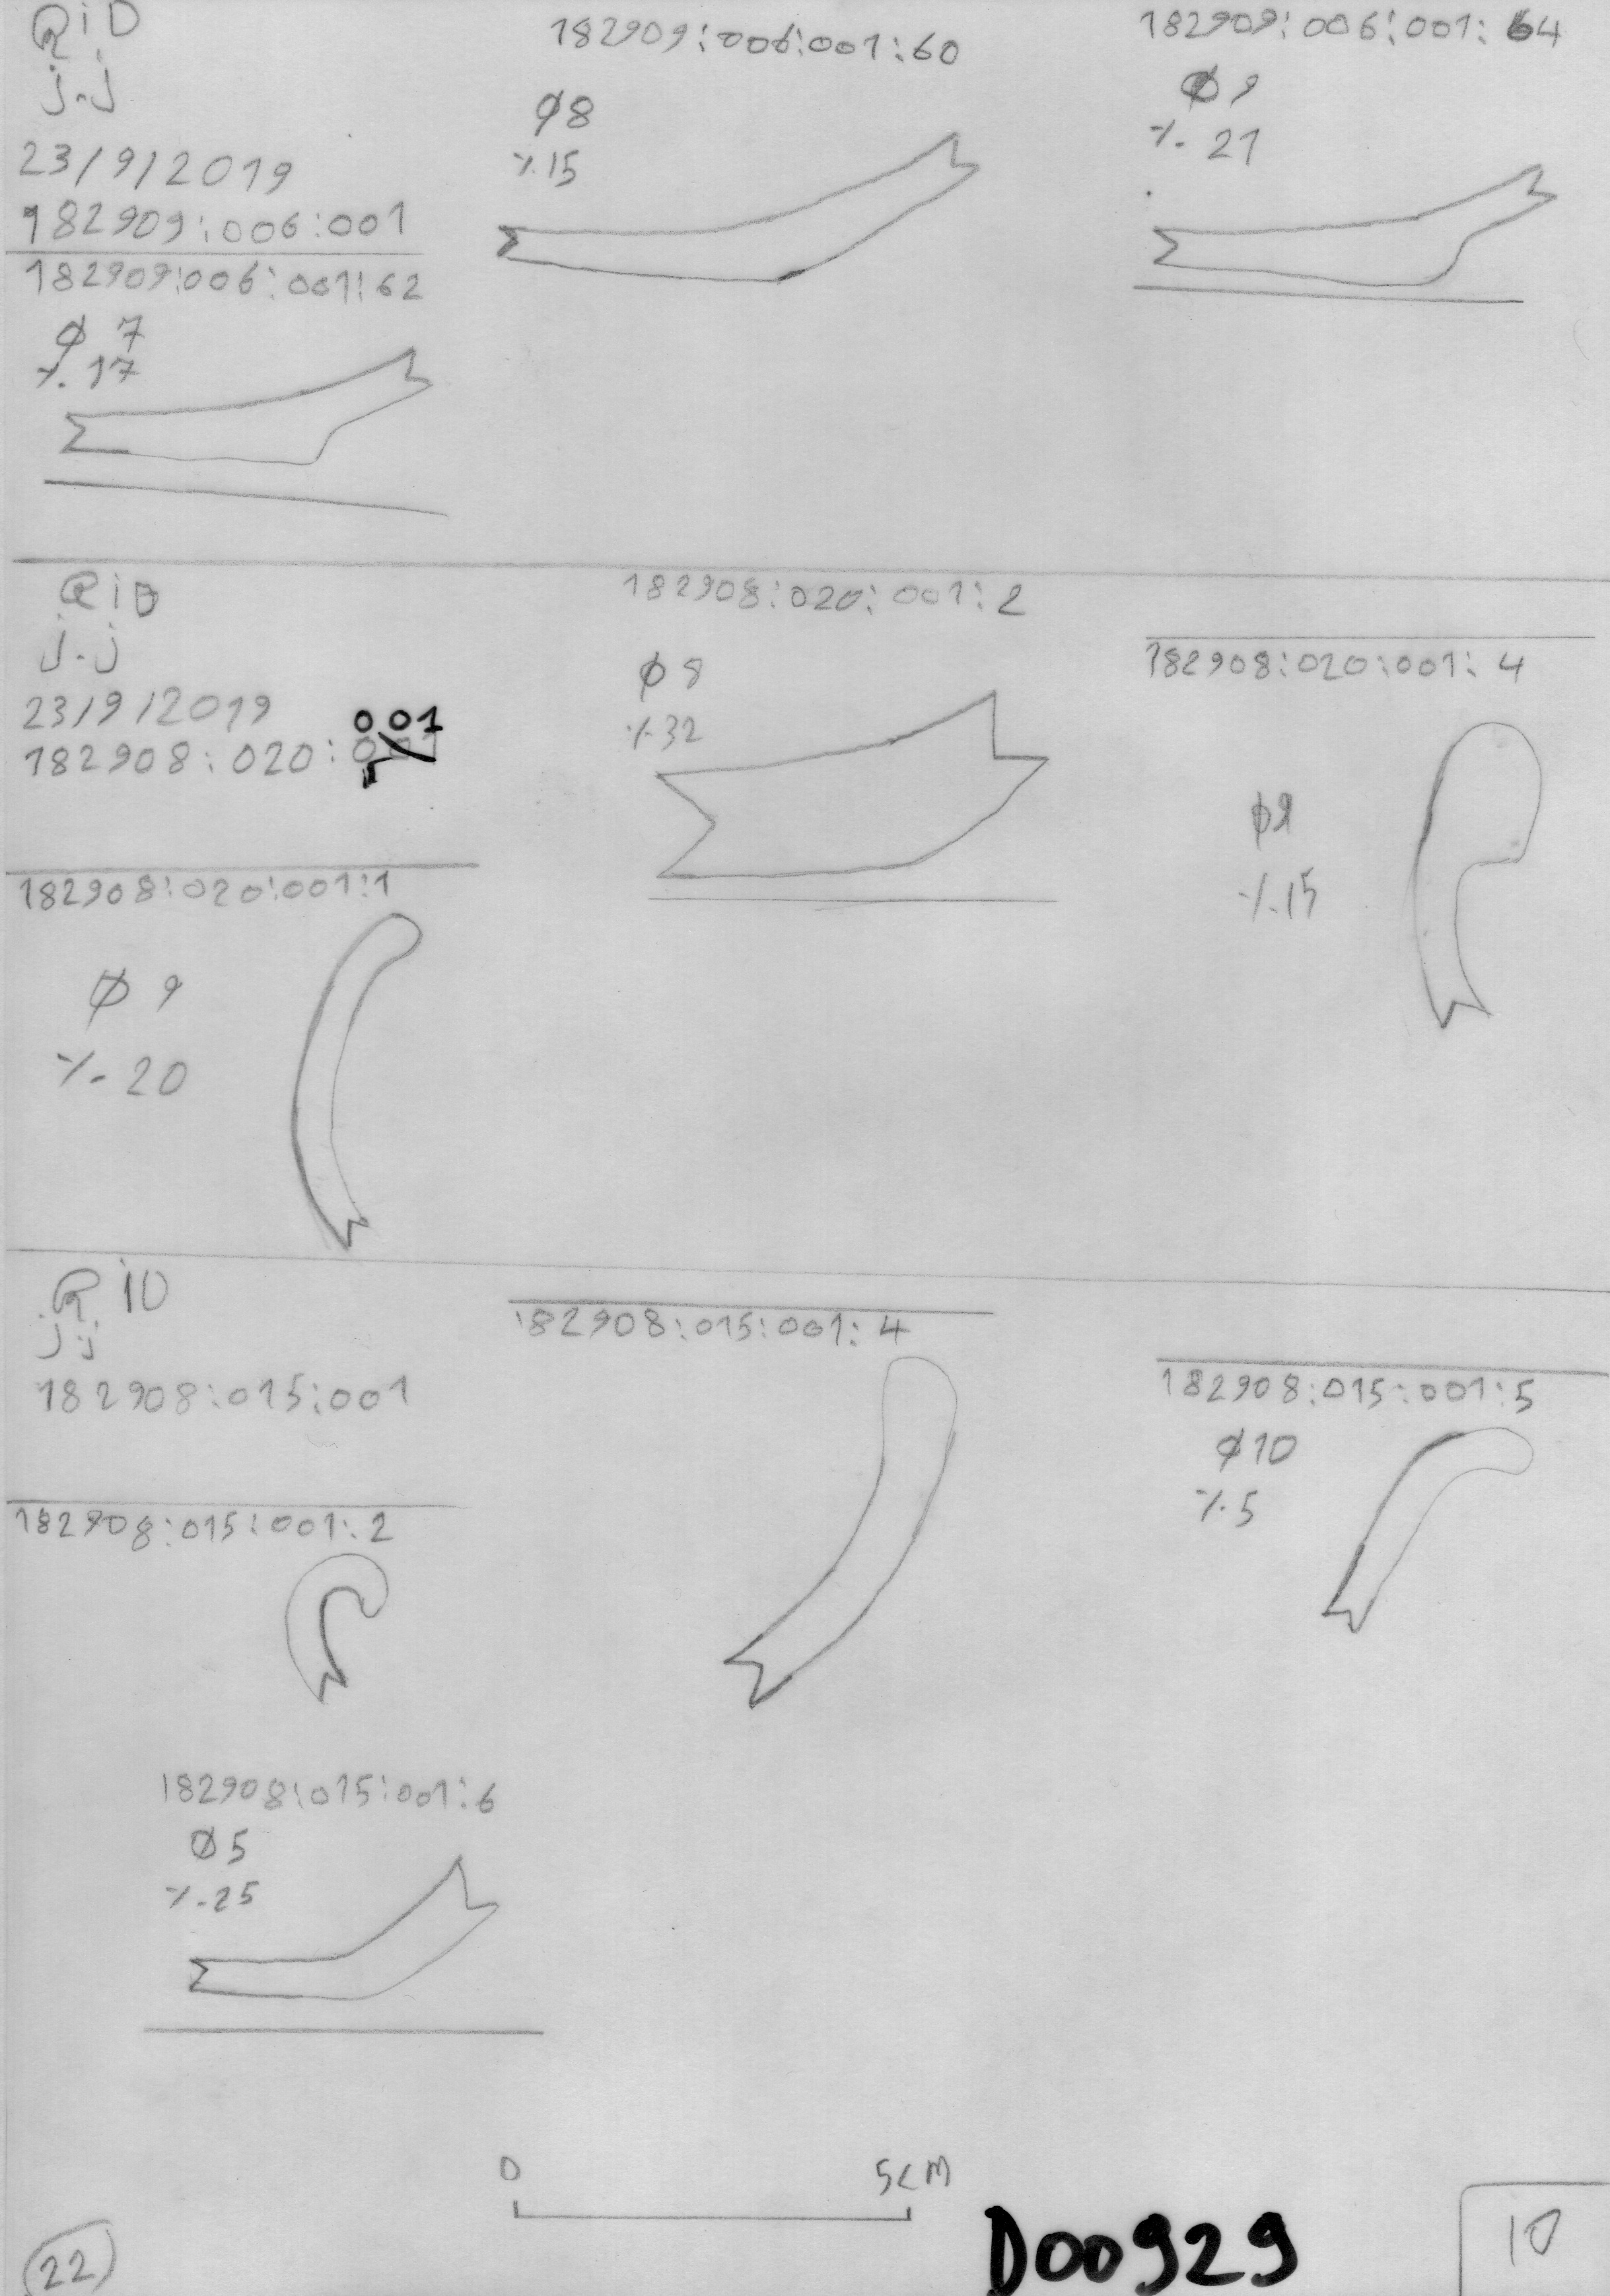 RiD
j.j
23/9/2019
182909:006:001
182909:006:001:62
Ø 7
%. 17
182909:006:001:60
Ø8
%15
182909:006:001:64
Ø 9
%. 21
RiD
j.j
23/9/2019
001
182908:020:
182908:020:001:1
Ø 9
%. 20
182908:020:001:2
Ø 8
%32
182908:020:001:4
Ø9
%.15
RiD
jj
182908:015:001
182908:015:001:2
182908:015:001:4
182908:015:001:5
Ø10
%.5
182908:015:001:6
Ø5
%.25
0 5CM
D00929
22
10